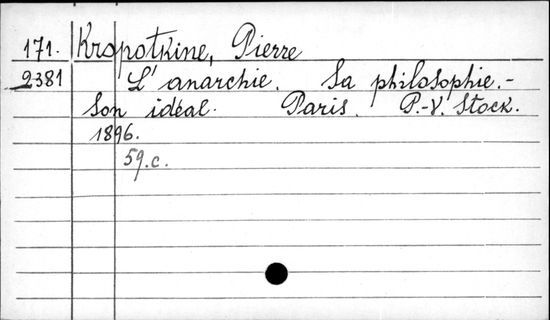 171. Kropotkine, Pierre
2381 L'anarchie. Sa philosophie.-
Son idéal. Paris. P.-V. Stock.
1896.
59.c.